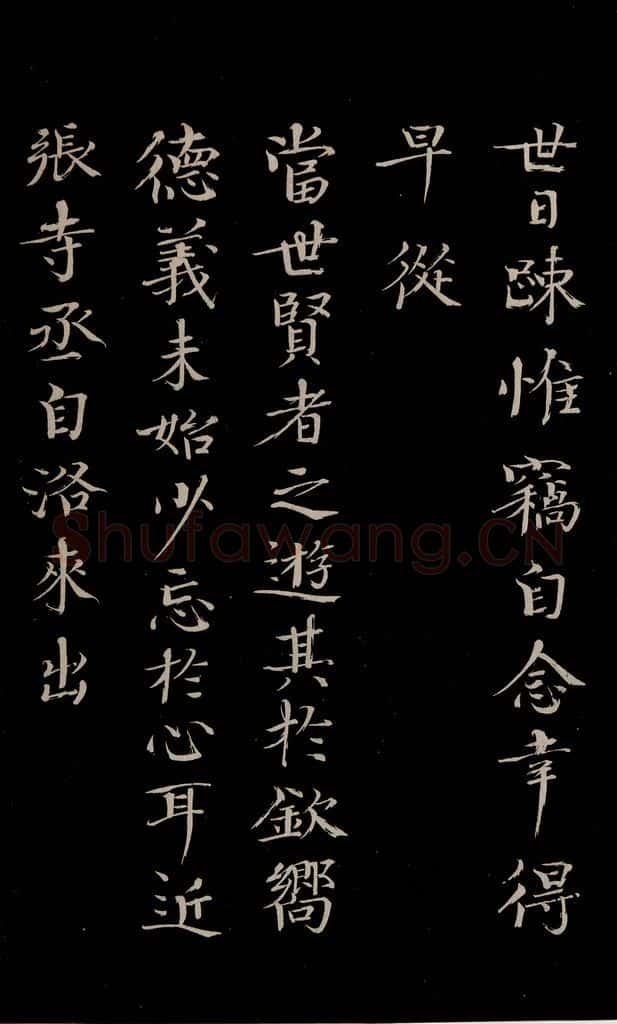 世日踈惟竊自念幸得
早從
當世賢者之遊其於欽嚮
德義未始少忘於心耳近
張寺丞自洛來出
Shufawang.CN